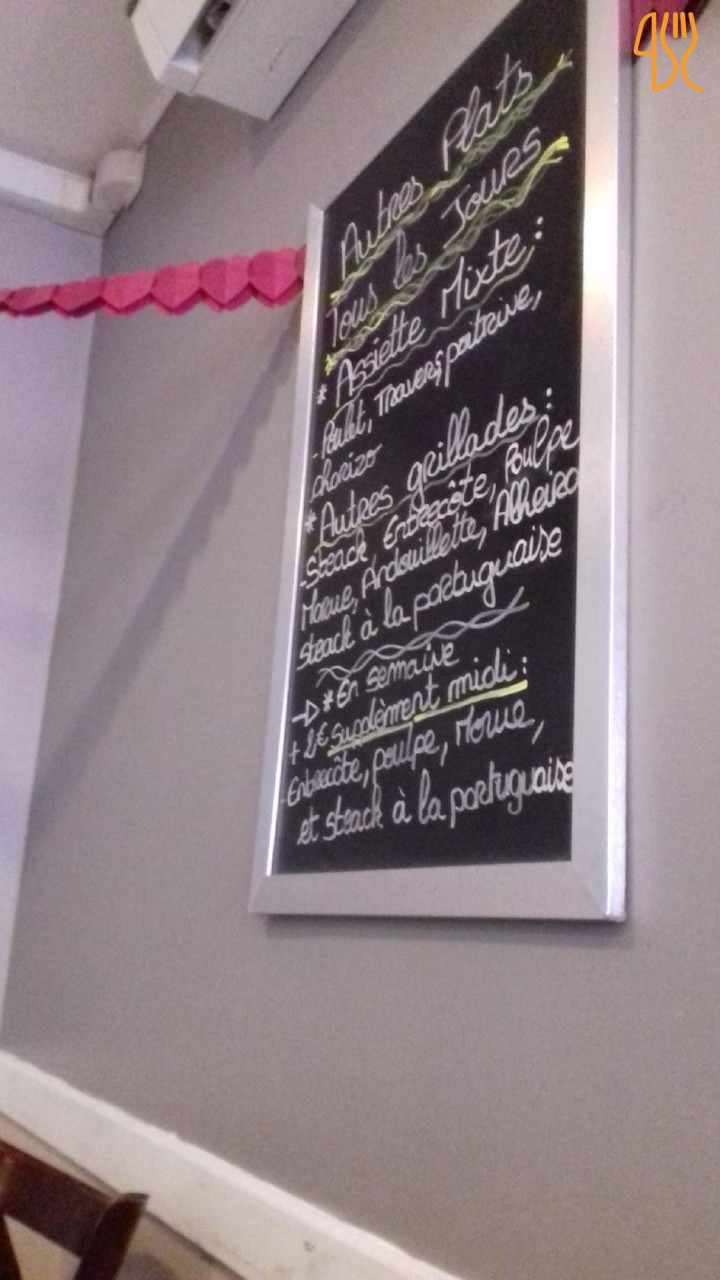 Autres Plats
Tous les Jours
* Assiette Mixte :
- Poulet, Travers, poitrine,
chorizo
* Autres grillades :
- Steack, Entrecôte, Poulpe
Morue, Andouillette, Alheira
steack à la portuguaise
→ * En semaine
+ 2€ supplèment midi :
- Entrecôte, poulpe, Morue,
et steack à la portuguaise